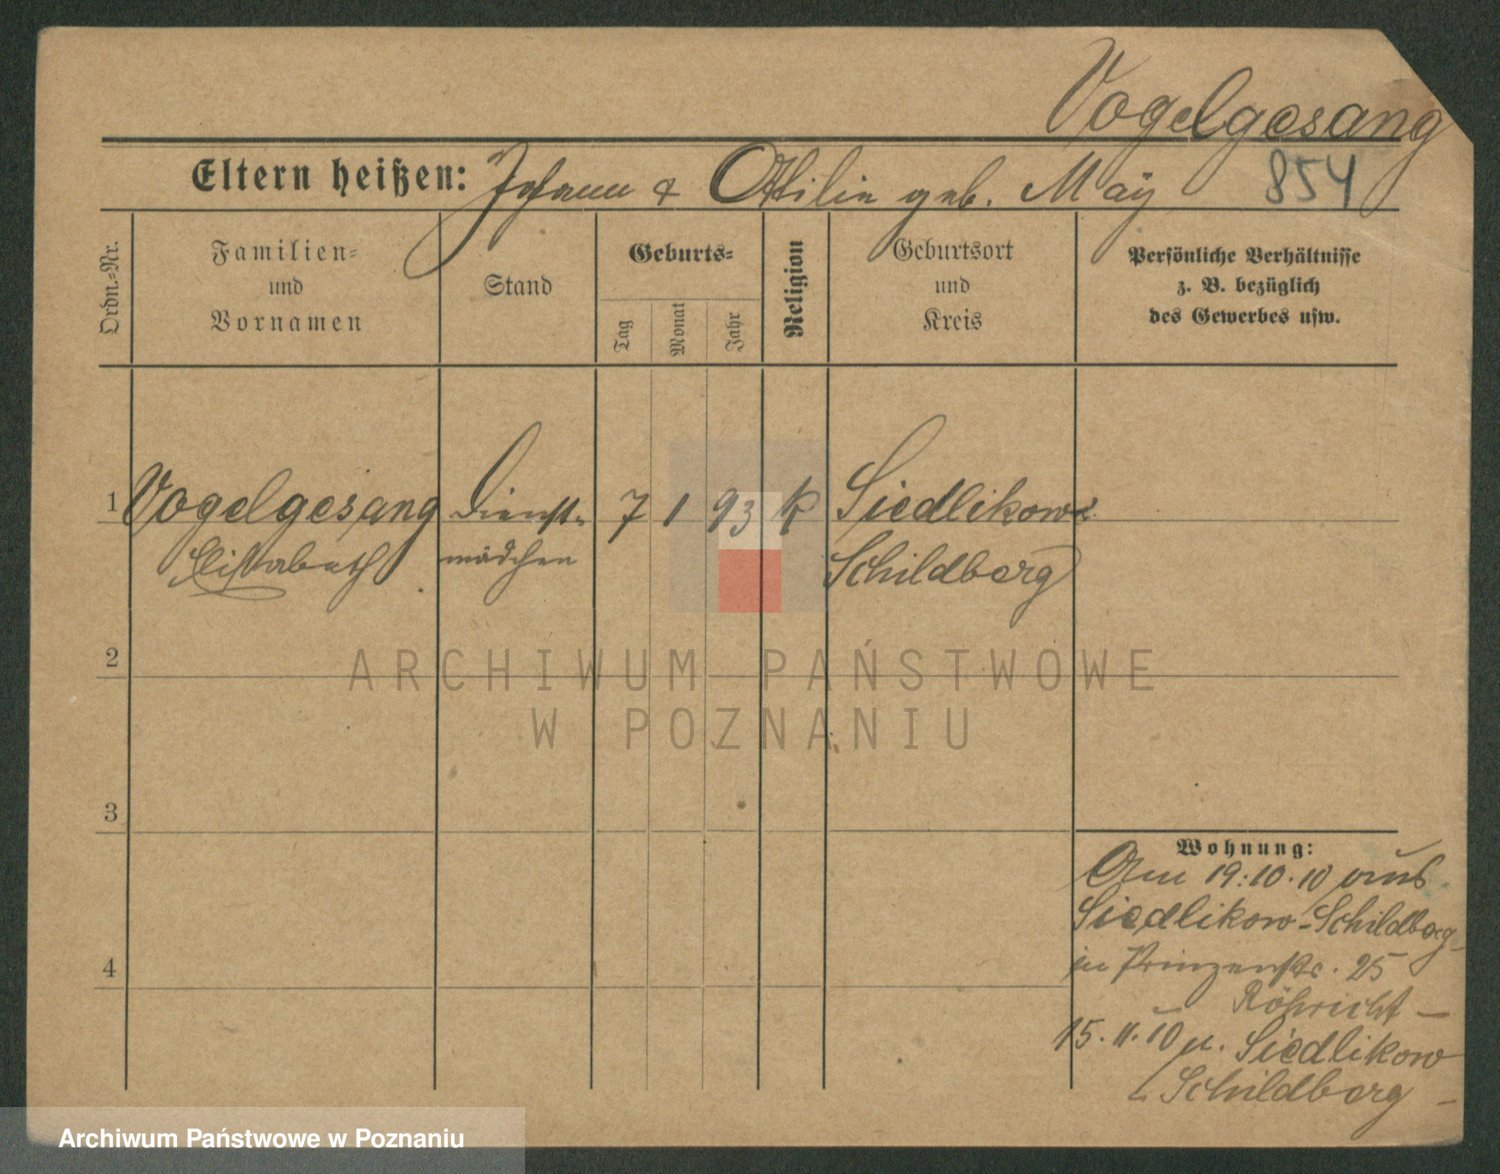 Vogelgesang
Eltern heißen: Johann & Ottilie geb. May 854
Ordn.-Nr.
Familien-
und
Vornamen
Stand
Geburts-
Tag
Monat
Jahr
Religion
Geburtsort
und
Kreis
Persönliche Verhältnisse
z. B. bezüglich
des Gewerbes usw.
1 Vogelgesang Dienst- 7 1 93 k Siedlikow
Elisabeth mädchen Schildberg
2
3
4
Wohnung:
Am 19.10.10 aus
Siedlikow-Schildberg
in Prinzenstr. 25
Röhricht -
15.11.10 n. Siedlikow
Schildberg -
ARCHIWUM PAŃSTWOWE
W POZNANIU
Archiwum Państwowe w Poznaniu